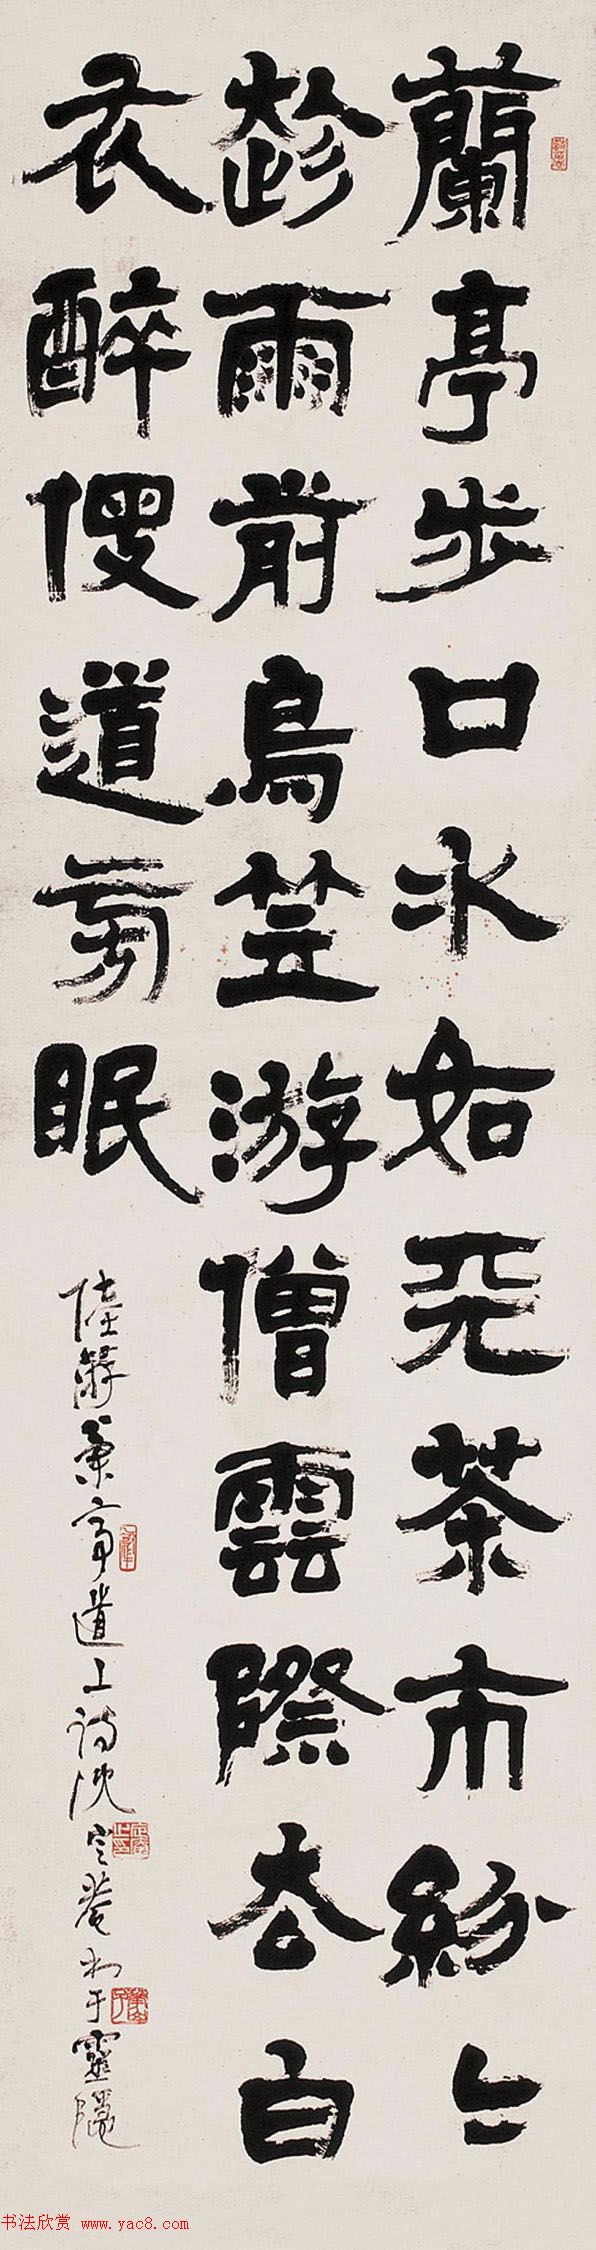 蘭亭步口水如天茶市紛々
趁雨前烏笠游僧雲際去白
衣醉傁道旁眠
陸游蘭亭道上詩沈定菴書于靈隱
书法欣赏 www.yac8.com